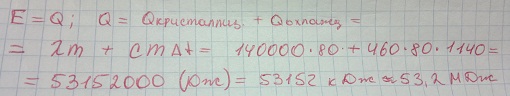 E = Q; Q = Qкристаллиз. + Qохлажд =
= λm + cmΔt = 140000·80 + 460·80·1140 =
= 53152000 (Дж) = 53152 кДж ≈ 53,2 МДж